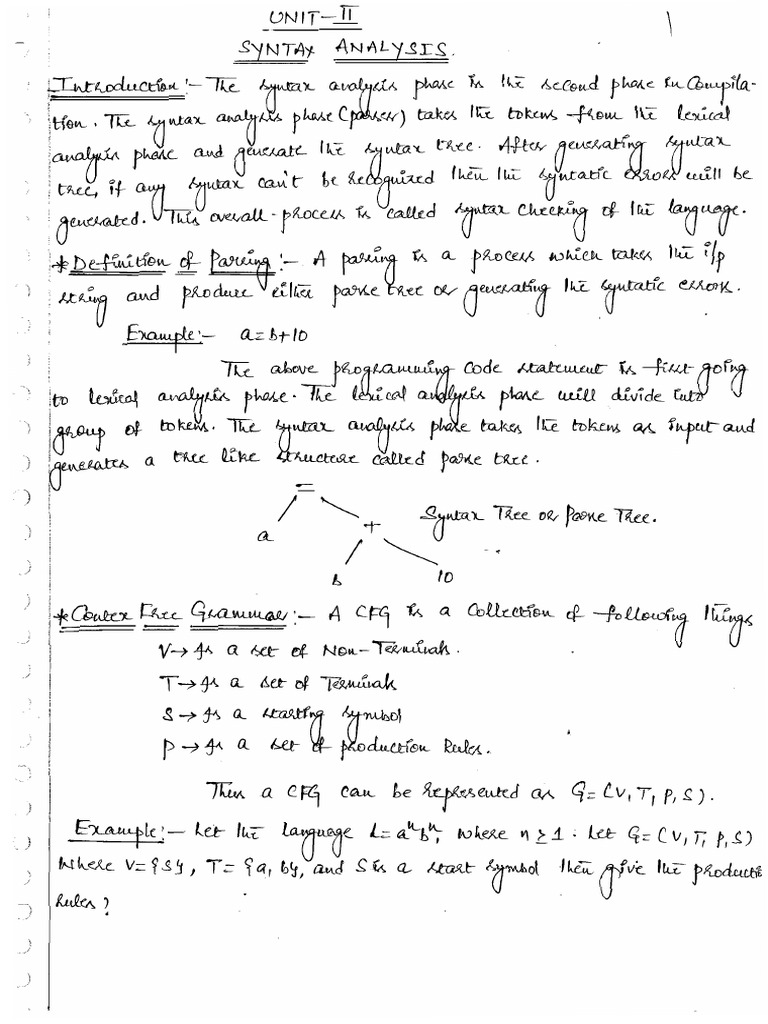 UNIT-II
1
SYNTAX ANALYSIS.
Introduction:- The syntax analysis phase is the second phase in Compila-
tion. The syntax analysis phase (parser) takes the tokens from the lexical
analysis phase and generate the syntax tree. After generating syntax
tree, if any syntax can't be recognized then the syntatic errors will be
generated. This overall-process is called syntax checking of the language.
*Definition of Parsing:- A parsing is a process which takes the i/p
string and produce either parse tree or generating the syntatic errors.
Example:- a=b+10
The above programming code statement is first going
to lexical analysis phase. The lexical analysis phase will divide into
group of tokens. The syntax analysis phase takes the tokens as input and
generates a tree like structure called parse tree.
=
Syntax Tree or Parse Tree.
a +
b 10
*Contex Free Grammar:- A CFG is a Collection of following things
V→Is a set of Non-Terminals.
T→Is a set of Terminals
S→Is a starting symbol
P→Is a set of production Rules.
Then a CFG can be represented as G=(V,T,P,S).
Example:- Let the language L=aⁿbⁿ, where n≥1. Let G=(V,T,P,S)
Where V={S}, T={a,b}, and S is a start symbol then give the productio
Rules?